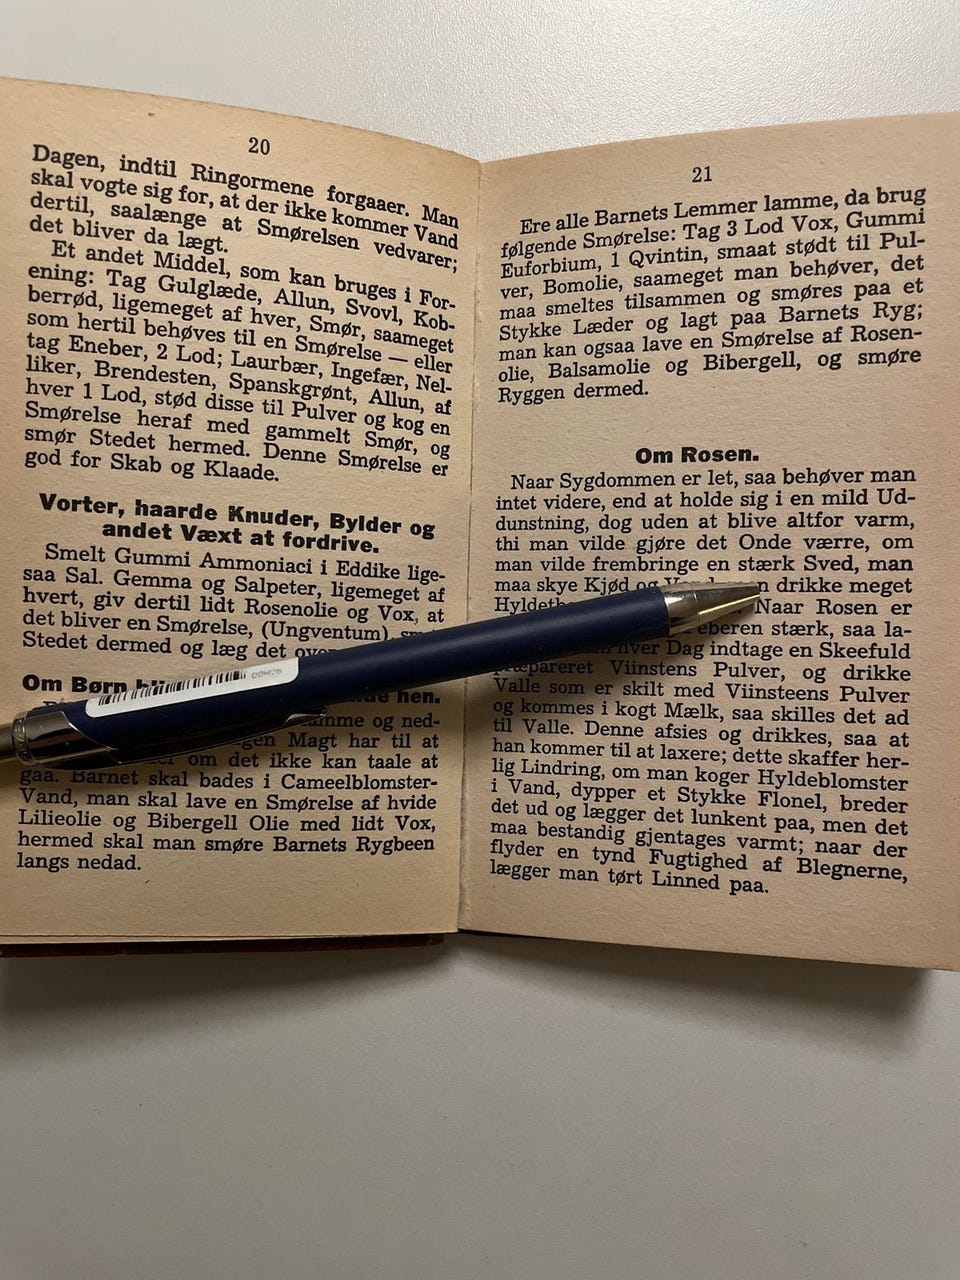 20
Dagen, indtil Ringormene forgaaer. Man
skal vogte sig for, at der ikke kommer Vand
dertil, saalænge at Smørelsen vedvarer;
det bliver da lægt.
Et andet Middel, som kan bruges i For-
ening: Tag Gulglæde, Allun, Svovl, Kob-
berrød, ligemeget af hver, Smør, saameget
som hertil behøves til en Smørelse — eller
tag Eneber, 2 Lod; Laurbær, Ingefær, Nel-
liker, Brendesten, Spanskgrønt, Allun, af
hver 1 Lod, stød disse til Pulver og kog en
Smørelse heraf med gammelt Smør, og
smør Stedet hermed. Denne Smørelse er
god for Skab og Klaade.
Vorter, haarde Knuder, Bylder og
andet Væxt at fordrive.
Smelt Gummi Ammoniaci i Eddike lige-
saa Sal. Gemma og Salpeter, ligemeget af
hvert, giv dertil lidt Rosenolie og Vox, at
det bliver en Smørelse, (Ungventum)
Stedet dermed og læg det
Om Børn hen.
og ned-
Magt har til at
om det ikke kan taale at
gaa. Barnet skal bades i Cameelblomster-
Vand, man skal lave en Smørelse af hvide
Lilieolie og Bibergell Olie med lidt Vox,
hermed skal man smøre Barnets Rygbeen
langs nedad.
RONDO
21
Ere alle Barnets Lemmer lamme, da brug
følgende Smørelse: Tag 3 Lod Vox, Gummi
Euforbium, 1 Qvintin, smaat stødt til Pul-
ver, Bomolie, saameget man behøver, det
maa smeltes tilsammen og smøres paa et
Stykke Læder og lagt paa Barnets Ryg;
man kan ogsaa lave en Smørelse af Rosen-
olie, Balsamolie og Bibergell, og smøre
Ryggen dermed.
Om Rosen.
Naar Sygdommen er let, saa behøver man
intet videre, end at holde sig i en mild Ud-
dunstning, dog uden at blive altfor varm,
thi man vilde gjøre det Onde værre, om
man vilde frembringe en stærk Sved, man
maa skye Kjød og drikke meget
Naar Rosen er
Feberen stærk, saa la-
hver Dag indtage en Skeefuld
præpareret Viinstens Pulver, og drikke
Valle som er skilt med Viinsteens Pulver
og kommes i kogt Mælk, saa skilles det ad
til Valle. Denne afsies og drikkes, saa at
han kommer til at laxere; dette skaffer her-
lig Lindring, om man koger Hyldeblomster
i Vand, dypper et Stykke Flonel, breder
det ud og lægger det lunkent paa, men det
maa bestandig gjentages varmt; naar der
flyder en tynd Fugtighed af Blegnerne,
lægger man tørt Linned paa.